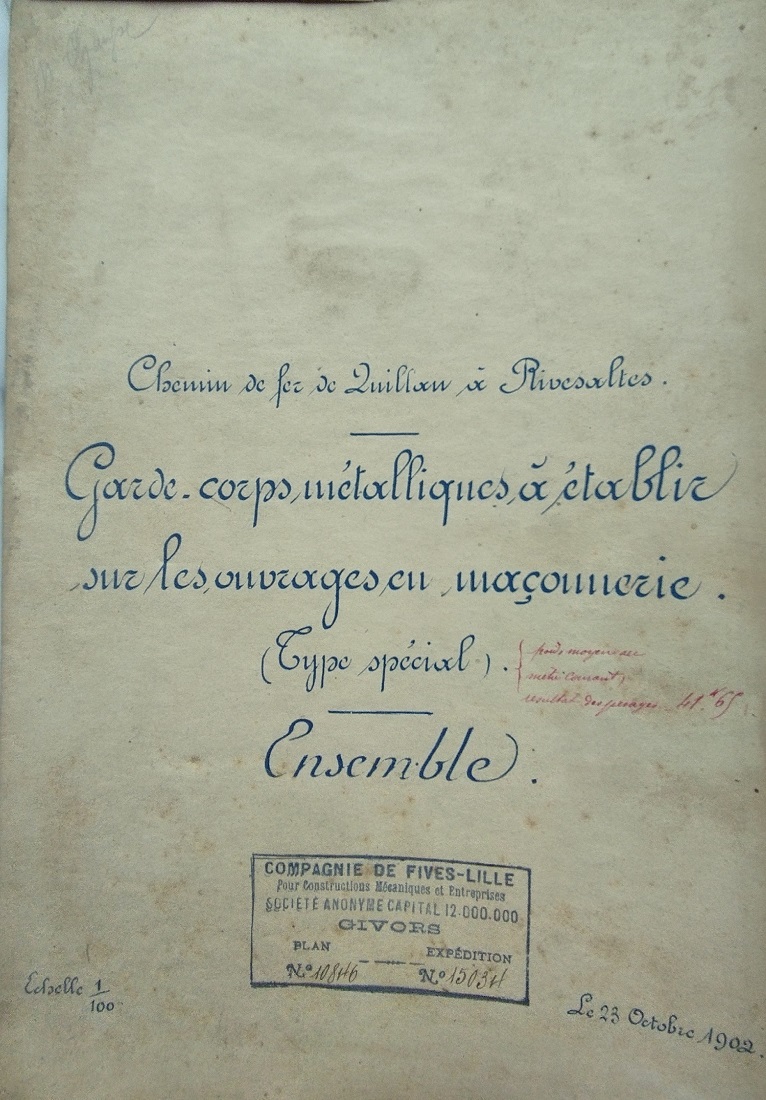 Chemin de fer de Quillan à Rivesaltes.
Garde-corps métalliques à établir
sur les ouvrages en maçonnerie.
(Type spécial).
poids moyen au
mètre courant
résultat des pesages 41.K65
Ensemble.
COMPAGNIE DE FIVES-LILLE
Pour Constructions Mécaniques et Entreprises
SOCIÉTÉ ANONYME CAPITAL 12.000.000
GIVORS
PLAN EXPÉDITION
N.° 10846 N.° 15034
Echelle 1/100
Le 23 Octobre 1902.